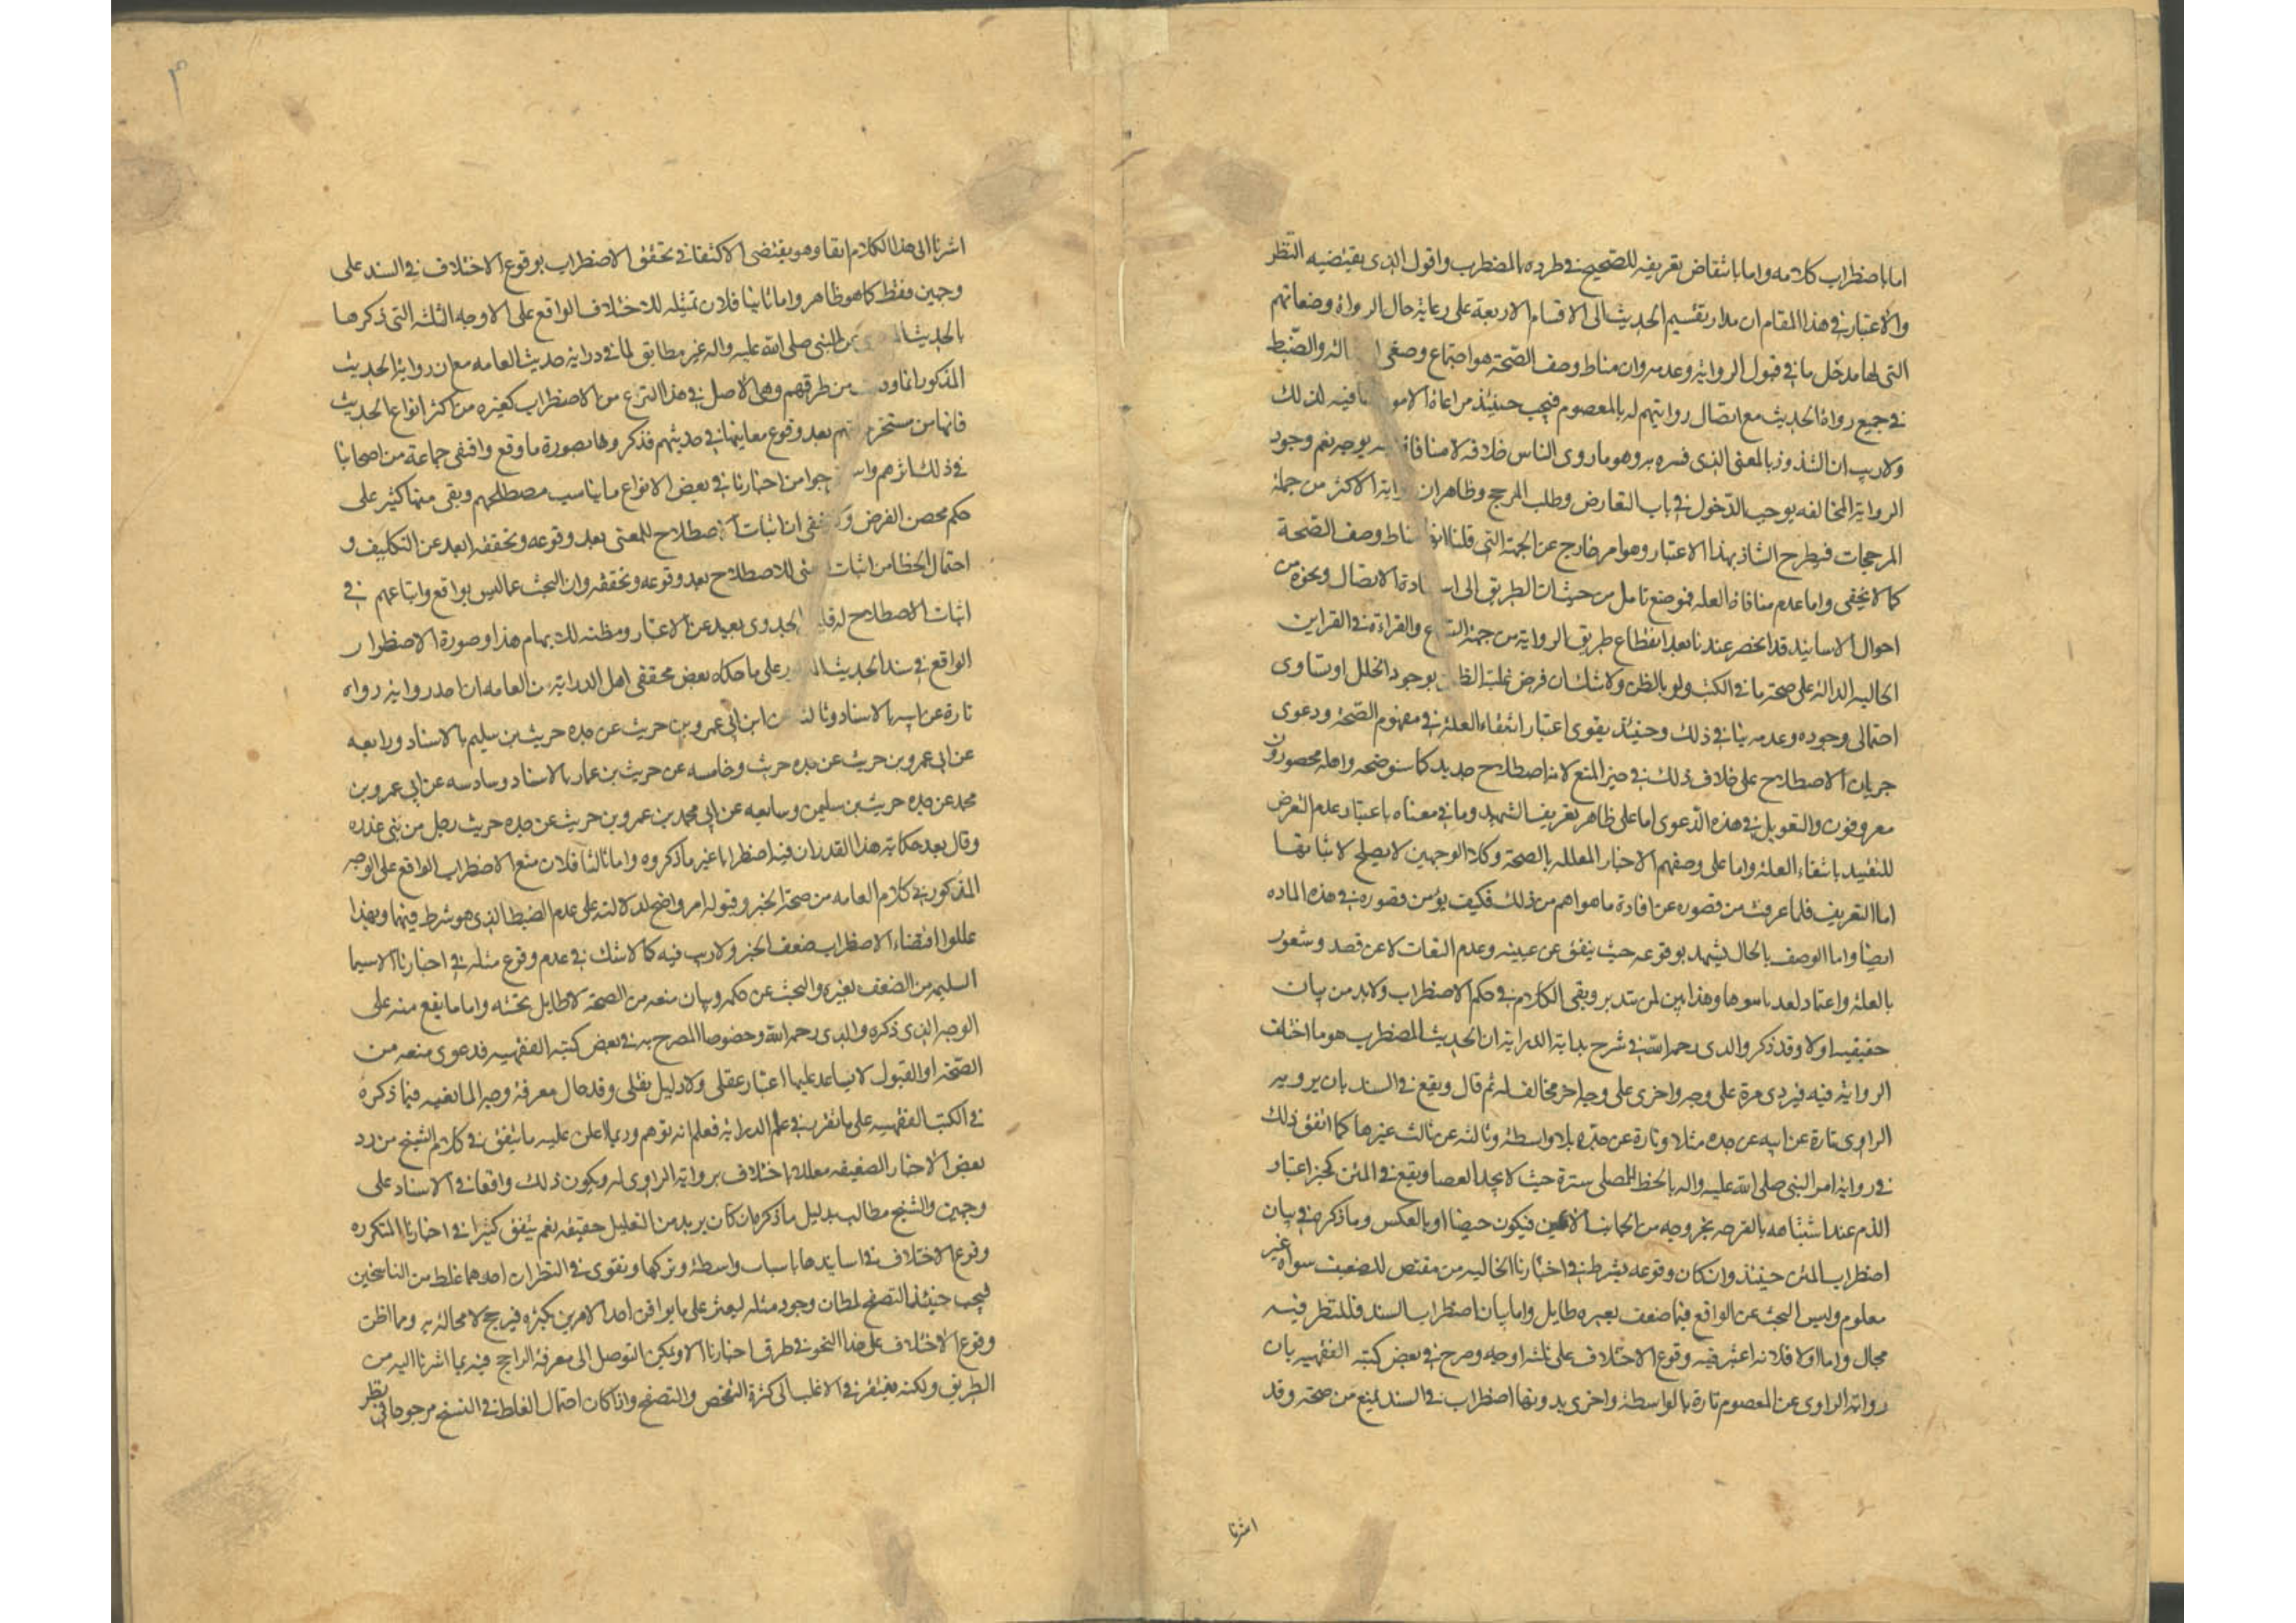 اما باضطراب كلامه واما بانتقاض تعريفه للصحيح في طرده بالمضطرب واقول الذى يقتضيه النظر
والاعتبار في هذا المقام ان مدار تقسيم الحديث الى الاقسام الاربعة على رعاية حال الرواة وصفاتهم
التي لها مدخل ما في قبول الرواية وعدمه وان مناط وصف الصحة هو اجتماع وصفى والضبط
في جميع رواة الحديث مع اتصال روايتهم له بالمعصوم فيجب حينئذ مراعاة الامو فيه لذلك
ولا ريب ان الشذوذ بالمعنى الذى فسره به وهو ما روى الناس خلافه لا منافاة به بوجه نعم وجود
الرواية المخالفه يوجب الدخول في باب التعارض وطلب المرجح وظاهر ان رواية الاكثر من جملة
المرجحات فيطرح الشاذ بهذا الاعتبار وهو امر خارج عن الجهة التي قلنا انها مناط وصف الصحة
كما لا يخفى واما عدم منافاة العله فموضع تامل من حيث ان الطريق الى استفادة الاتصال ونحوه من
احوال الاسانيد قد انحصر عندنا بعد انقطاع طريق الرواية من جهة السماع والقراءة في القراين
الحاليه الدالة على صحة ما في الكتب ولو بالظن ولا شك ان فرض غلبة الظن بوجود الخلل او تساوى
احتمالى وجوده وعدمه ينافي ذلك وحينئذ يقوى اعتبار انتفاء العلة في مفهوم الصحة ودعوى
جريان الاصطلاح على خلاف ذلك في حيز المنع لانه اصطلاح جديد كما سنوضحه واهله محصورون
معروفون والتعويل في هذه الدعوى اما على ظاهر تعريف الشهيد وما في معناه باعتبار عدم التعرض
للتقييد بانتفاء العلة واما على وصفهم الاخبار المعلله بالصحة وكلا الوجهين لا يصلح لاثباتها
اما التعريف فلما عرفت من قصوره عن افادة ما هو اهم من ذلك فكيف يؤمن قصوره في هذه الماده
ايضا واما الوصف بالحال يشهد بوقوعه حيث يتفق عن غيبته وعدم التفات لا عن قصد وشعور
بالعلة واعتماد لعد باسوها وهذا بين لمن تدبر وبقى الكلام في حكم الاضطراب ولا بد من بيان
حقيقته اولا وقد ذكر والدى رحمه الله في شرح بداية الدراية ان الحديث المضطرب هو ما اختلف
الرواية فيه فيروى مرة على وجه واخرى على وجه اخر مخالف له ثم قال ويقع في السند بان يرويه
الراوى تارة عن ابيه عن جده مثلا وتارة عن جده بلا واسطة وثالثه عن ثالث غيرها كما اتفق ذلك
في رواية امر النبى صلى الله عليه واله بالخط للمصلى سترة حيث لا يجد العصا ويقع في المتن كخبر اعتبار
الدم عند اشتباهه بالقرحه بخروجه من الجانب الايمن فيكون حيضا او بالعكس وما ذكره في بيان
اضطراب المتن حينئذ وان كان وقوعه بشرطه في اخبارنا الخاليه من مقتض للضعيف سواه غير
معلوم وليس البحث عن الواقع فيما ضعف بغيره طايل واما بيان اضطراب السند فللنظر فيه
مجال واما اولا فلانه اعتبر فيه وقوع الاختلاف على ثلثه اوجه وصرح في بعض كتبه الفقهيه بان
رواية الراوى عن المعصوم تارة بالواسطة واخرى بدونها اضطراب في السند يمنع من صحته وقد
اشرنا
اشرنا الى هذا الكلام انفا وهو يقتضى الاكتفا في تحقق الاضطراب بوقوع الاختلاف في السند على
وجهين فقط كما هو ظاهر واما ثانيا فلان تمثيله للاختلاف الواقع على الاوجه الثلثه التي ذكرها
بالحديث المروى عن النبى صلى الله عليه واله غير مطابق لما في دراية حديث العامه مع ان رواية الحديث
المذكور انما وردت من طرقهم وهى الاصل في هذا النوع من الاضطراب كغيره من اكثر انواع الحديث
فانها من مستخرجاتهم بعد وقوع معانيها في حديثهم فذكروها بصورة ما وقع واقتفى جماعة من اصحابنا
في ذلك اثرهم واستخرجوا من اخبارنا في بعض الانواع ما يناسب مصطلحهم وبقى منها كثير على
حكم محض الفرض ولا يخفى ان اثبات الاصطلاح للمعنى بعد وقوعه وتحققه ابعد عن التكليف و
احتمال الخطا من اثبات المعنى للاصطلاح بعد وقوعه وتحققه وان البحث عما ليس بواقع واتباعهم في
اثبات الاصطلاح له قليل الجدوى بعيد عن الاعتبار ومظنه للابهام هذا وصورة الاضطرار
الواقع في سند الحديث المذكور على ما حكاه بعض محققى اهل الدراية من العامه ان احد رواية رواه
تارة عن ابيه بالاسناد وثالثه عن ابن ابى عمرو بن حريث عن جده حريث بن سليم بالاسناد ورابعه
عن ابى عمرو بن حريث عن جده حريث وخامسه عن حريث بن عمار بالاسناد وسادسه عن ابى عمرو بن
محمد عن جده حريث بن سليمن وسابعه عن ابى محمد بن عمرو بن حريث عن جده حريث رجل من بنى عذره
وقال بعد حكاية هذا القدر ان فيه اضطرابا غير ما ذكروه واما ثالثا فلان منع الاضطراب الواقع على الوجه
المذكور في كلام العامه من صحة الخبر وقبوله امر واضح لدلالته على عدم الضبط الذى هو شرط فيهما وبهذا
عللوا اقتضاء الاضطراب ضعف الخبر ولا ريب فيه كما لا شك في عدم وقوع مثله في اخبارنا لاسيما
السليمه من الضعف بغيره والبحث عن حكمه وبيان منعه من الصحة لا طايل تحته واما ما يقع منه على
الوجه الذى ذكره والدى رحمه الله وخصوصا المصرح به في بعض كتبه الفقهيه فدعوى منعه من
الصحة او القبول لا يساعد عليها اعتبار عقلى ولا دليل نقلى وقد حال معرفة وجه المانعيه فيما ذكره
في الكتب الفقهيه على ما تقرر في علم الدراية فعلم انه توهم وربما اعلن عليه ما يتفق في كلام الشيخ من رد
بعض الاخبار الضعيفه معللا باختلاف رواية الراوى له ويكون ذلك واقعا في الاسناد على
وجهين والشيخ مطالب بدليل ما ذكره ان كان يريد من التعليل حقيقته نعم يتفق كثيرا في اخبارنا المتكرره
وقوع الاختلاف في اسانيدها باسباب واسطة وتركها ونقوى في النظر ان احدهما غلط من الناسخين
فيجب حينئذ التصفح لمظان وجود مثله ليعثر على ما يوافق احد الامرين بكثره فيرجح لا محالة به وما اظن
وقوع الاختلاف على هذا النحو في طرق اخبارنا الا ويمكن التوصل الى معرفة الراجح فيه بما اشرنا اليه من
الطريق ولكنه يفتقر في الاغلب الى كثرة التفحص والتصفح واذا كان احتمال الغلط في النسخ مرجوحا في نظر